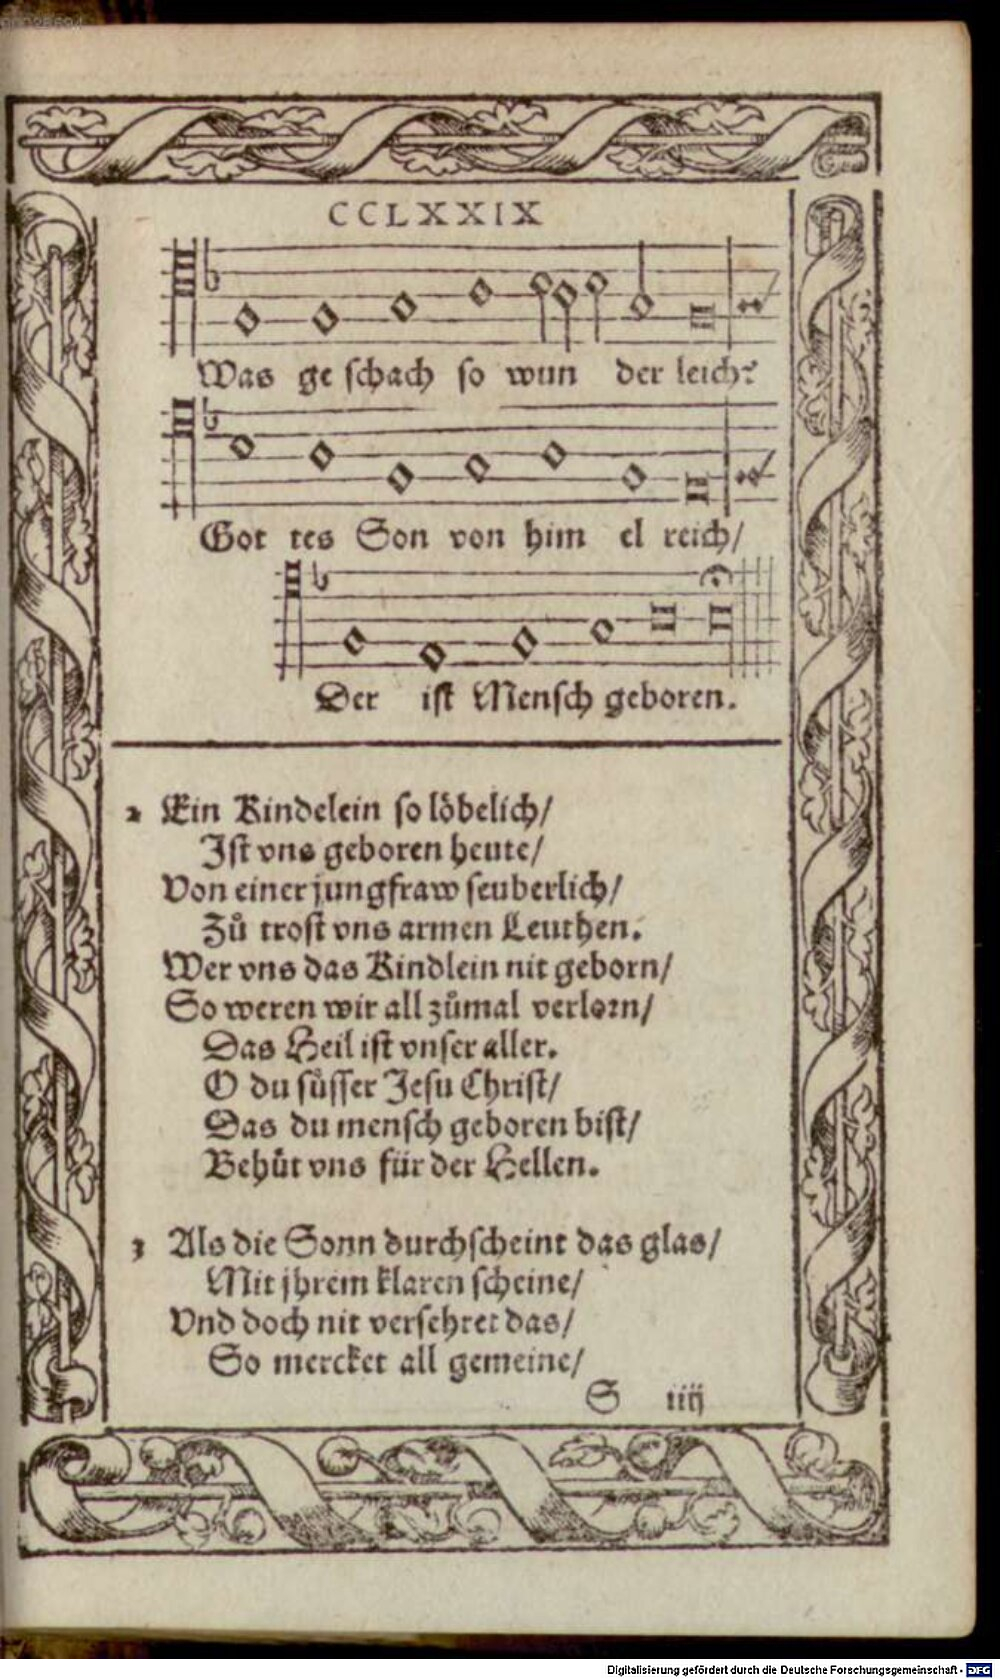 CCLXXIX
Was ge schach so wun der leich?
Got tes Son von him el reich/
Der ist Mensch geboren.
2 Ein Kindelein so löbelich/
Ist vns geboren heute/
Von einer jungfraw seuberlich/
Zů trost vns armen Leuthen.
Wer vns das Kindlein nit geborn/
So weren wir all zůmal verlorn/
Das Heil ist vnser aller.
O du sůsser Jesu Christ/
Das du mensch geboren bist/
Behůt vns für der Hellen.
3 Als die Sonn durchscheint das glas/
Mit jhrem klaren scheine/
Vnd doch nit versehret das/
So mercket all gemeine/
S iiij
Digitalisierung gefördert durch die Deutsche Forschungsgemeinschaft - DFG